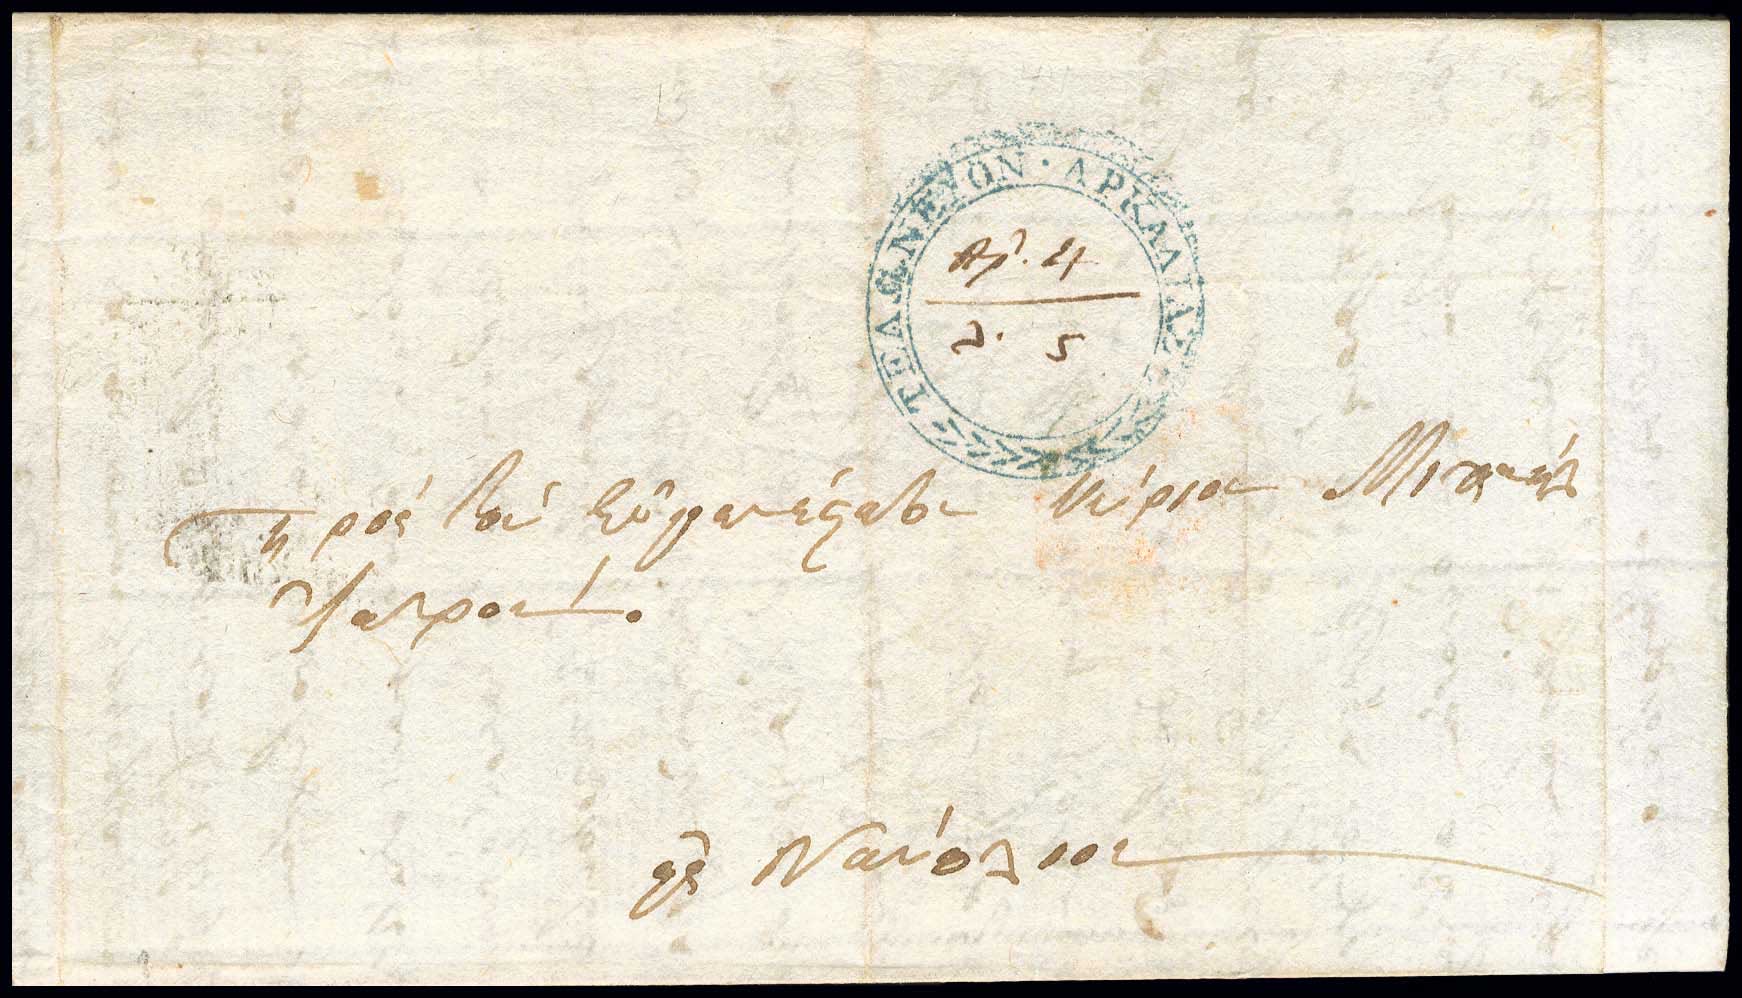 ΤΕΛΩΝΕΙΟΝ · ΑΡΚΑΔΙΑΣ
Αρ. 21
λ. 5
Πρὸς τὸν Εὐγενέστατον Κύριον Μιχαὴλ
Ἰατρόν.
εἰς Ναύπλιον